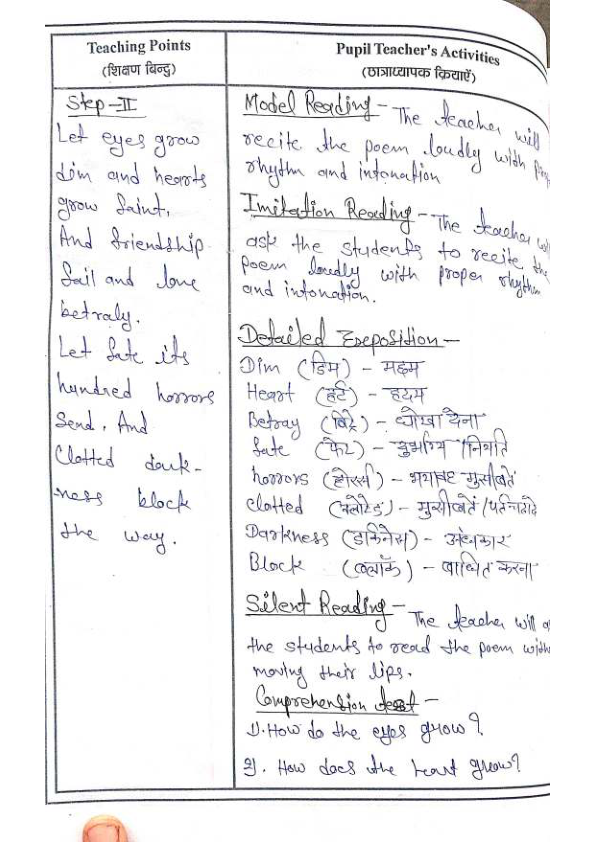 Teaching Points
(शिक्षण बिन्दु)
Step-II
Let eyes grow
dim and hearts
grow faint,
And friendship
fail and love
betraly.
Let fate its
hundred horrors
Send. And
Clotted dark-
ness block
the way.
Pupil Teacher's Activities
(छात्राध्यापक क्रियाएँ)
Model Reading - The teacher will
recite the poem loudly with
rhythm and intonation
Imitation Reading - The teacher
ask the students to recite the
poem loudly with proper rhythm
and intonation.
Detailed Exeposition -
Dim (डिम) - मद्दम
Heart (हर्ट) - हृदय
Betray (बिट्रे) - धोखा देना
fate (फेट) - दुर्भाग्य / नियति
horrors (होरर्स) - भयावह मुसीबतें
Clotted (क्लोटेड) - मुसीबतें /
Darkness (डार्कनेस) - अंधकार
Block (ब्लॉक) - बाधित करना
Silent Reading - The teacher will
the students to read the poem
moving their lips.
Comprehension test -
1). How do the eyes grow?
2). How does the heart grow?